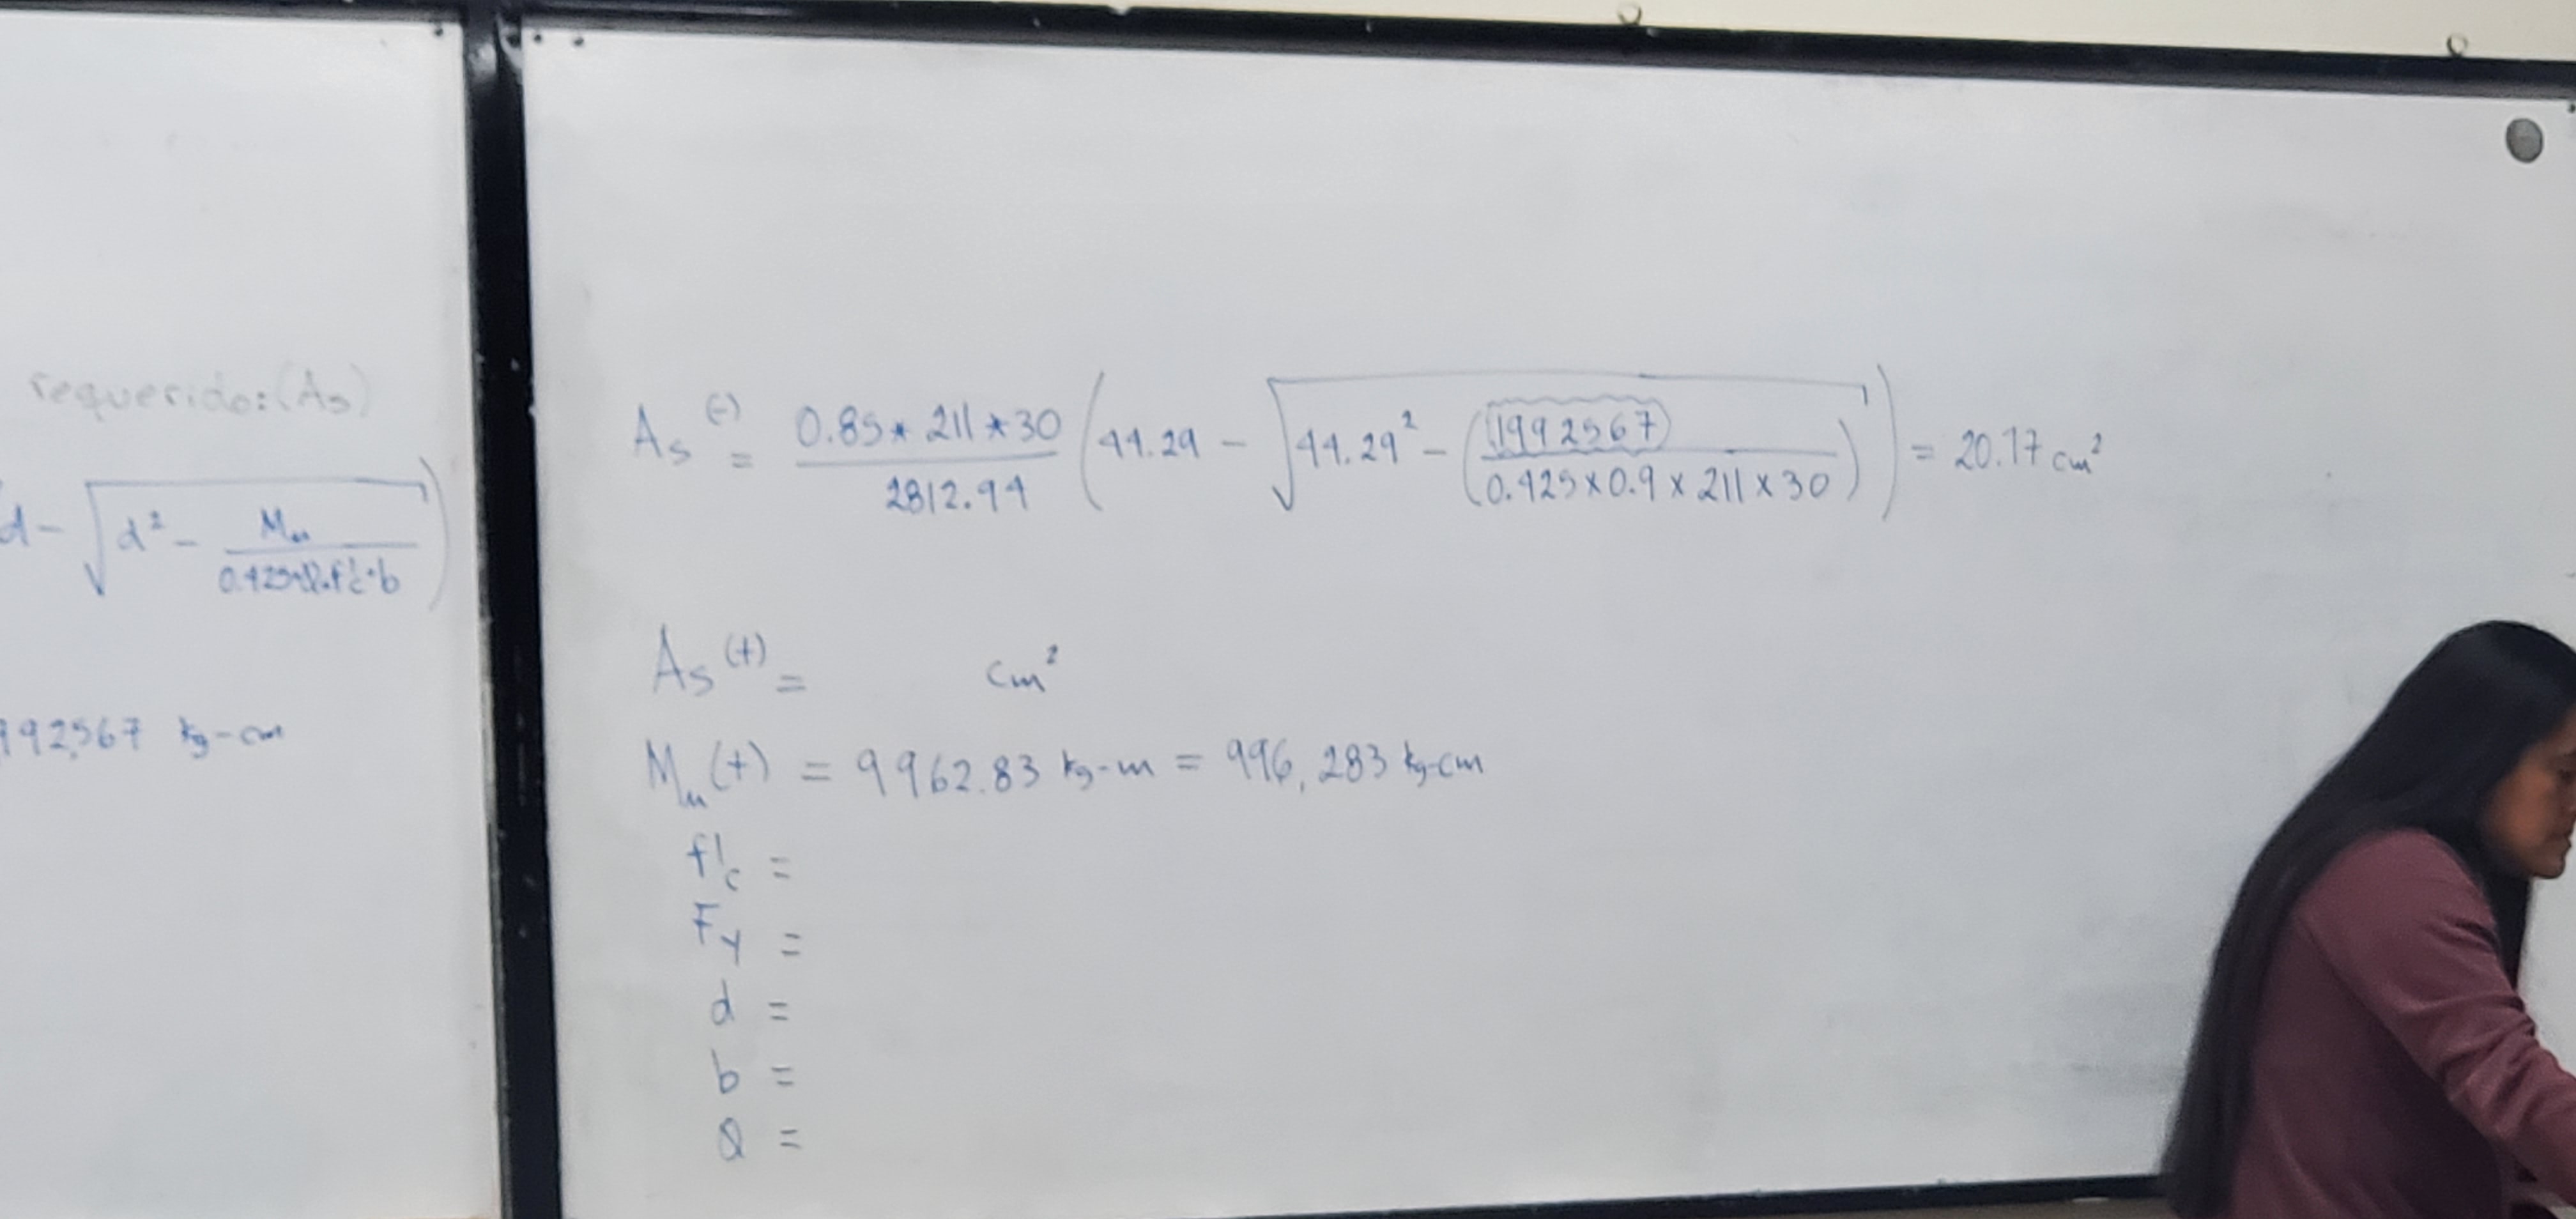 requerido: (As)
d - √(d² - Mu / 0.425*Ø*f'c*b))
992,567 kg-cm
As(-) = 0.85*211*30 / 2812.94 (44.29 - √(44.29² - ((1992567) / 0.425x0.9x211x30))) = 20.17 cm²
As(+) = cm²
Mu(+) = 9962.83 kg-m = 996,283 kg-cm
f'c =
Fy =
d =
b =
Ø =